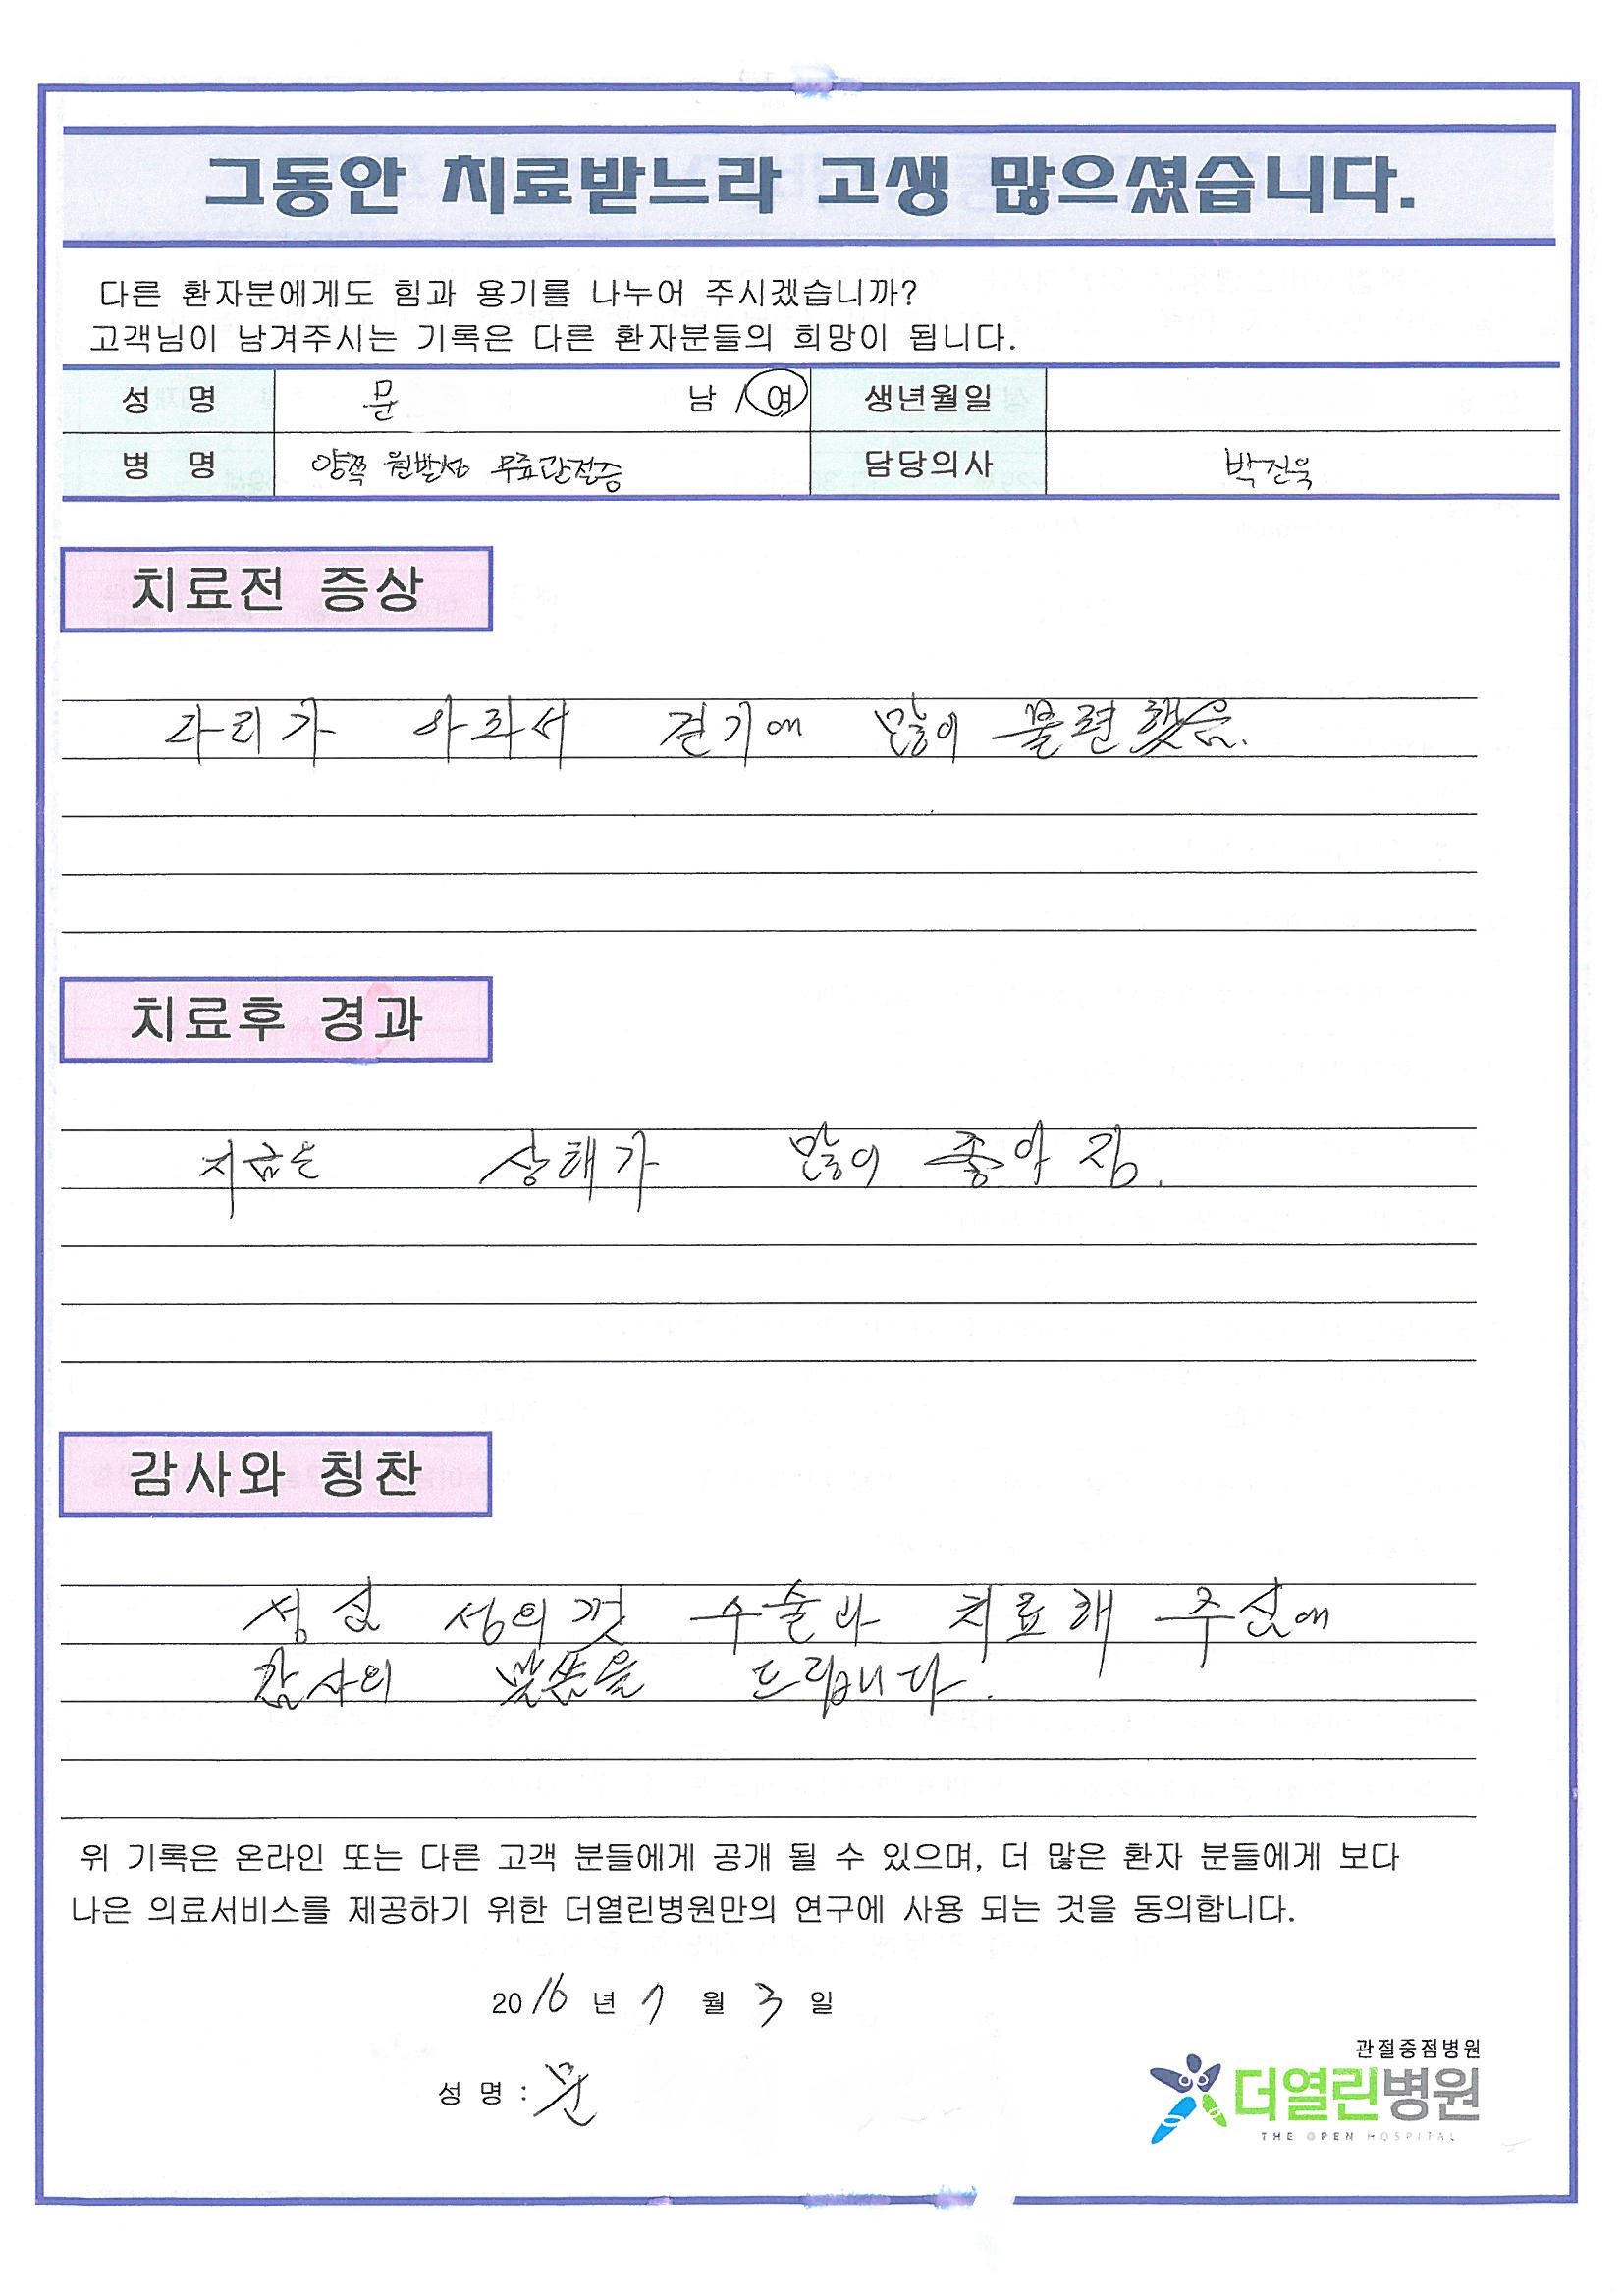 그동안 치료받느라 고생 많으셨습니다.
다른 환자분에게도 힘과 용기를 나누어 주시겠습니까?
고객님이 남겨주시는 기록은 다른 환자분들의 희망이 됩니다.
성 명 문 남 / 여 생년월일
병 명 양쪽 원발성 무릎관절증 담당의사 박진욱
치료전 증상
다리가 아파서 걷기에 많이 불편했음.
치료후 경과
지금은 상태가 많이 좋아 짐.
감사와 칭찬
성실 성의껏 수술과 치료해 주심에
감사의 말씀을 드립니다.
위 기록은 온라인 또는 다른 고객 분들에게 공개 될 수 있으며, 더 많은 환자 분들에게 보다
나은 의료서비스를 제공하기 위한 더열린병원만의 연구에 사용 되는 것을 동의합니다.
2016 년 7 월 3 일
성 명 : 문
관절중점병원
더열린병원
THE OPEN HOSPITAL